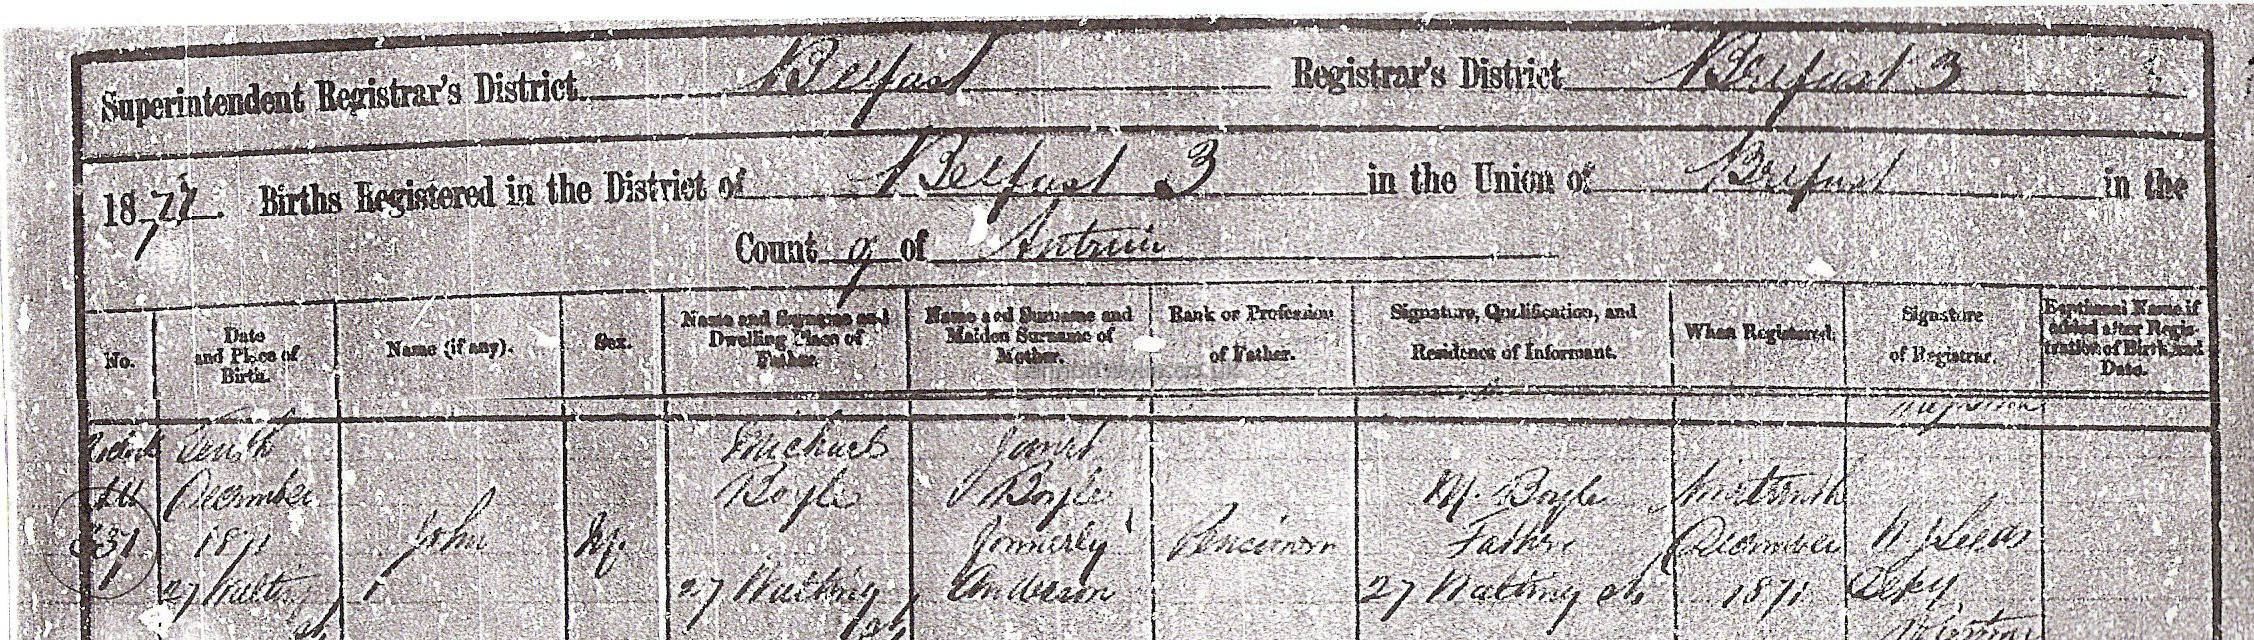 Superintendent Registrar's District Belfast Registrar's District Belfast 3
1871. Births Registered in the District of Belfast 3 in the Union of Belfast in the
County of Antrim
No. Date and Place of Birth. Name (if any). Sex. Name and Surname and Dwelling Place of Father. Name and Surname and Maiden Surname of Mother. Rank or Profession of Father. Signature, Qualification, and Residence of Informant. When Registered. Signature of Registrar. Baptismal Name if added after Registration of Birth and Date.
Tenth Michael Janet
December Boyle Boyle M. Boyle Nineteenth
331 1871 John M. formerly Pensioner Father December
27 Watling 27 Watling Anderson 27 Watling St 1871 Depy
St St